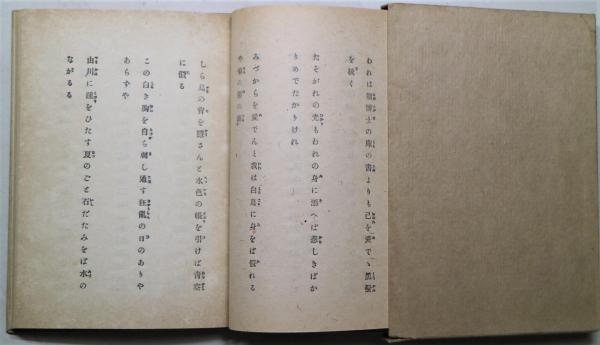 われは
の庫の書よりも己を愛でゝ黒髪
を梳く
たそがれの光もわれの身に添へば悲しきばか
りめでたかりけれ
みづからを愛でんと我は白鳥に身をば假れる
や
しら鳥の背を
さんと水色の帳を引けば青空
に似る
この白き胸を自ら刺し通す狂亂の日のありや
あらずや
山川に
をひたす夏のごと石だたみをば水の
ながるる